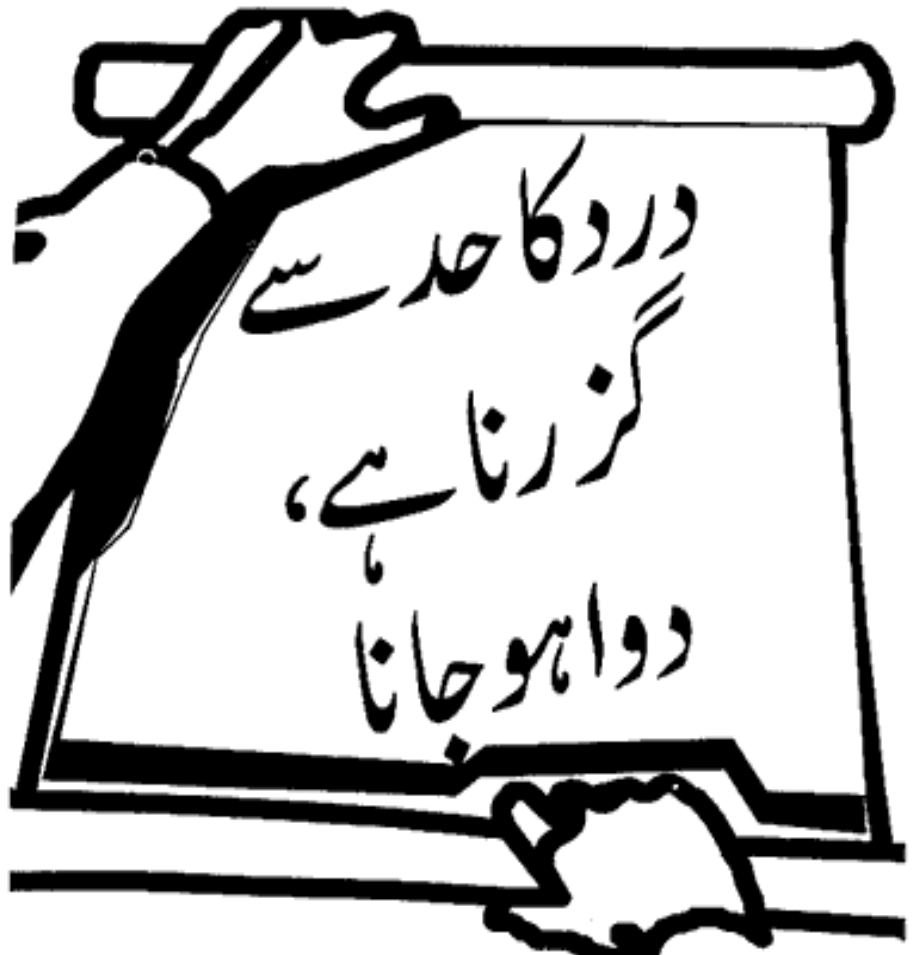 درد کا حد سے
گزرنا ہے،
دوا ہو جانا